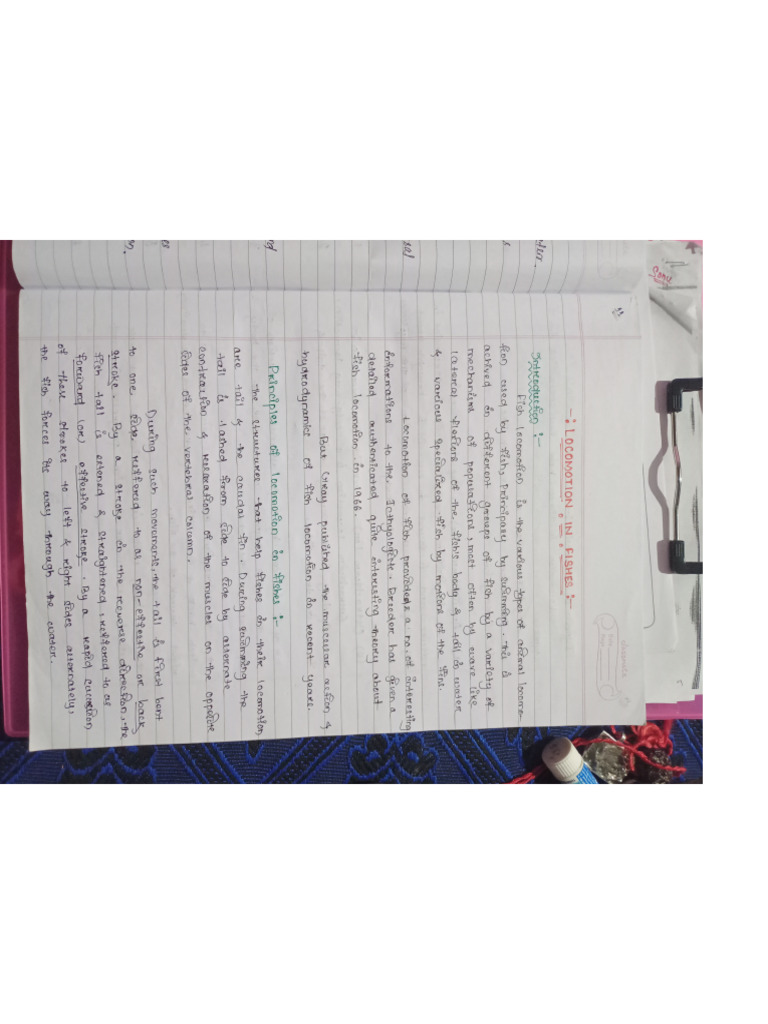 -: LOCOMOTION IN FISHES :-
Introduction :-
Fish locomotion is the various types of animal locomo-
tion used by fish, Principary by swimming. This is
achived in different groups of fish by a variety of
mechanisms of populations, most often by wave like
lateral flexions of the fish's body & tail in water
& various specialized fish by motions of the fins.
Locomotion of fish provides a no. of interesting
informations to the Icthyologists. Breeder has given a
detailed authenticated quite interesting theory about
fish locomotion in 1966.
But Gray published the muscular action &
hydrodynamics of fish locomotion in recent years.
Principles of locomotion in fishes :-
The structures that help fishes in their locomotion,
are tail & the caudal fin. During swimming the
tail is lashed from side to side by alternate
contraction & relaxation of the muscles on the opposite
sides of the vertebral column.
During such movements, the tail is first bent
to one side, reffered to as non-effective or back
stroke. By a stroke in the reverse direction, the
fish tail is extened & straightened, reffered to as
forward (or) effective stroke. By a rapid succession
of these strokes to left & right sides alternately,
the fish forces its way through the water.